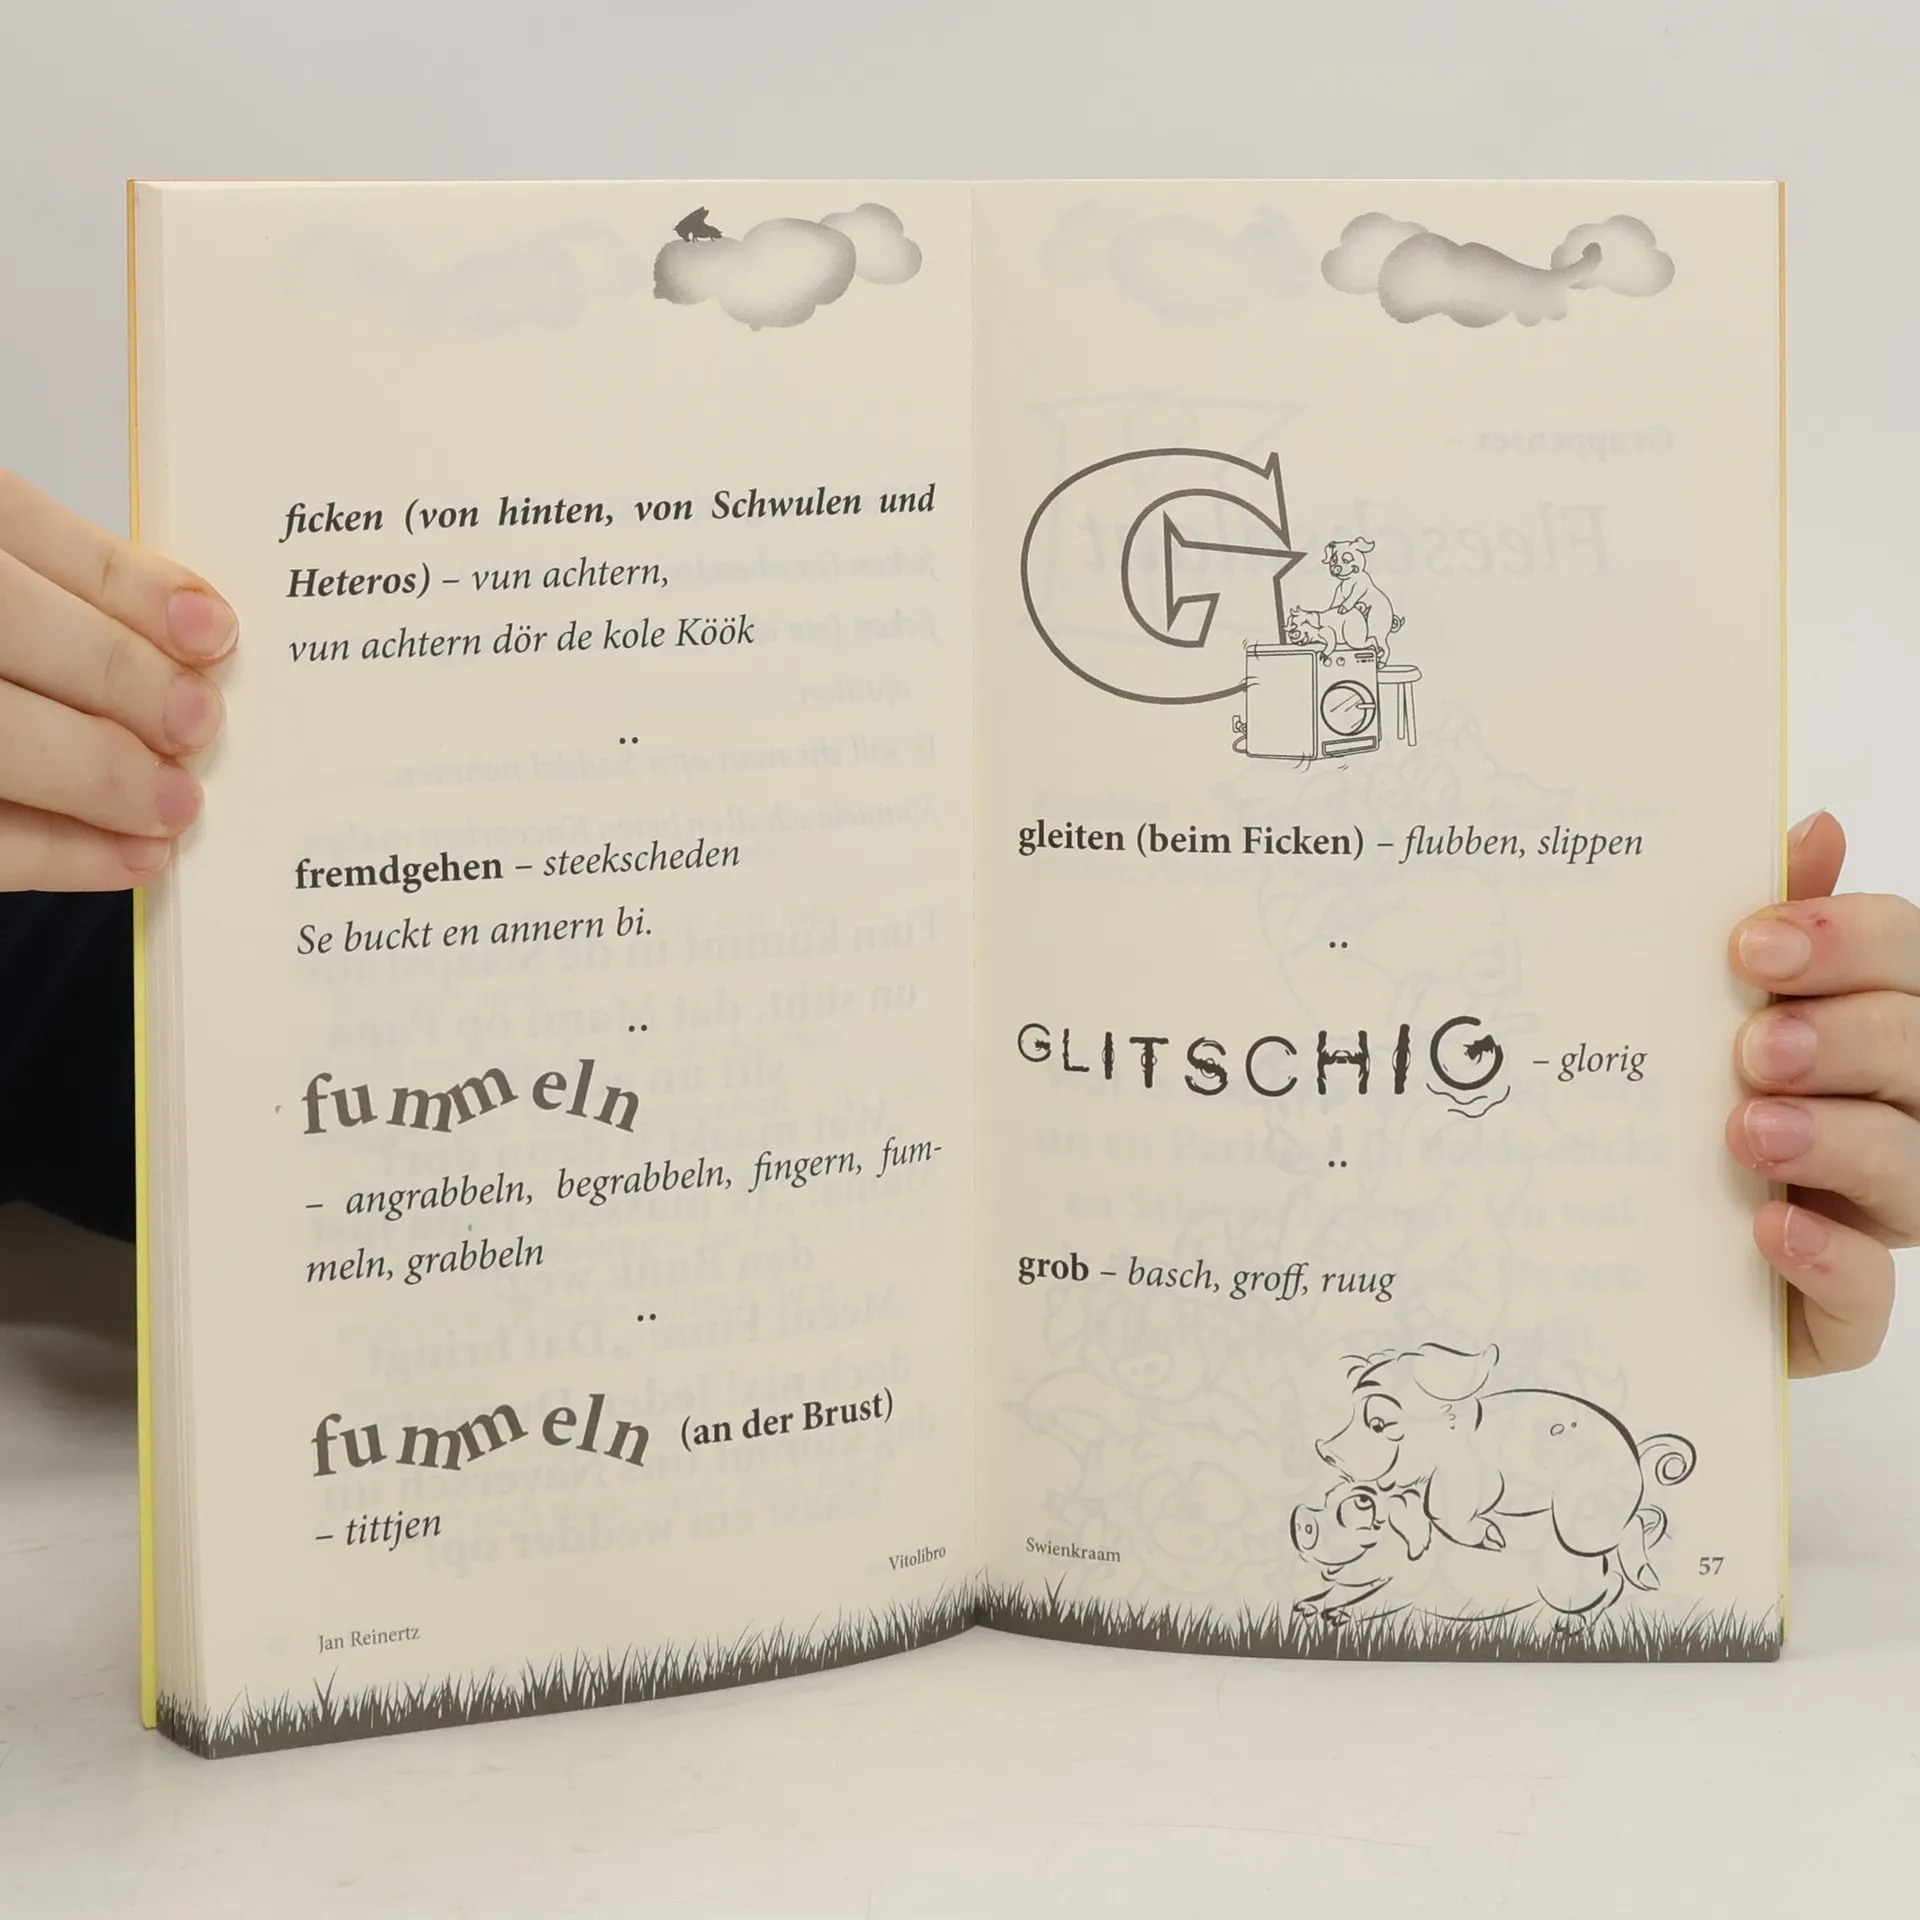 ficken (von hinten, von Schwulen und
Heteros) – vun achtern,
vun achtern dör de kole Köök
..
fremdgehen – steekscheden
Se buckt en annern bi.
..
fummeln
– angrabbeln, begrabbeln, fingern, fum-
meln, grabbeln
..
fummeln (an der Brust)
– tittjen
Vitolibro
Jan Reinertz
G
gleiten (beim Ficken) – flubben, slippen
..
GLITSCHIG – glorig
..
grob – basch, groff, ruug
Swienkraam
57